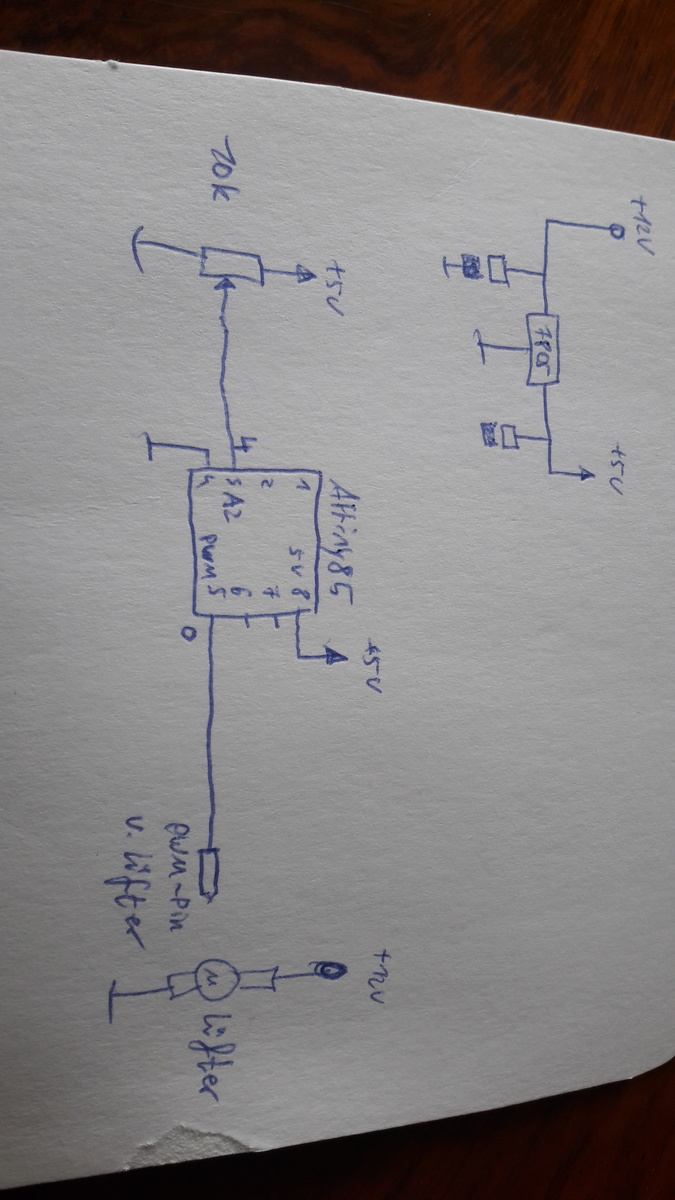 +12V
7805
+5V
10k
+5V
4
ATtiny85
1
2
3 A2
4
5V 8
7
6
PWM 5
+5V
PWM-Pin
v. Lüfter
+12V
M
Lüfter